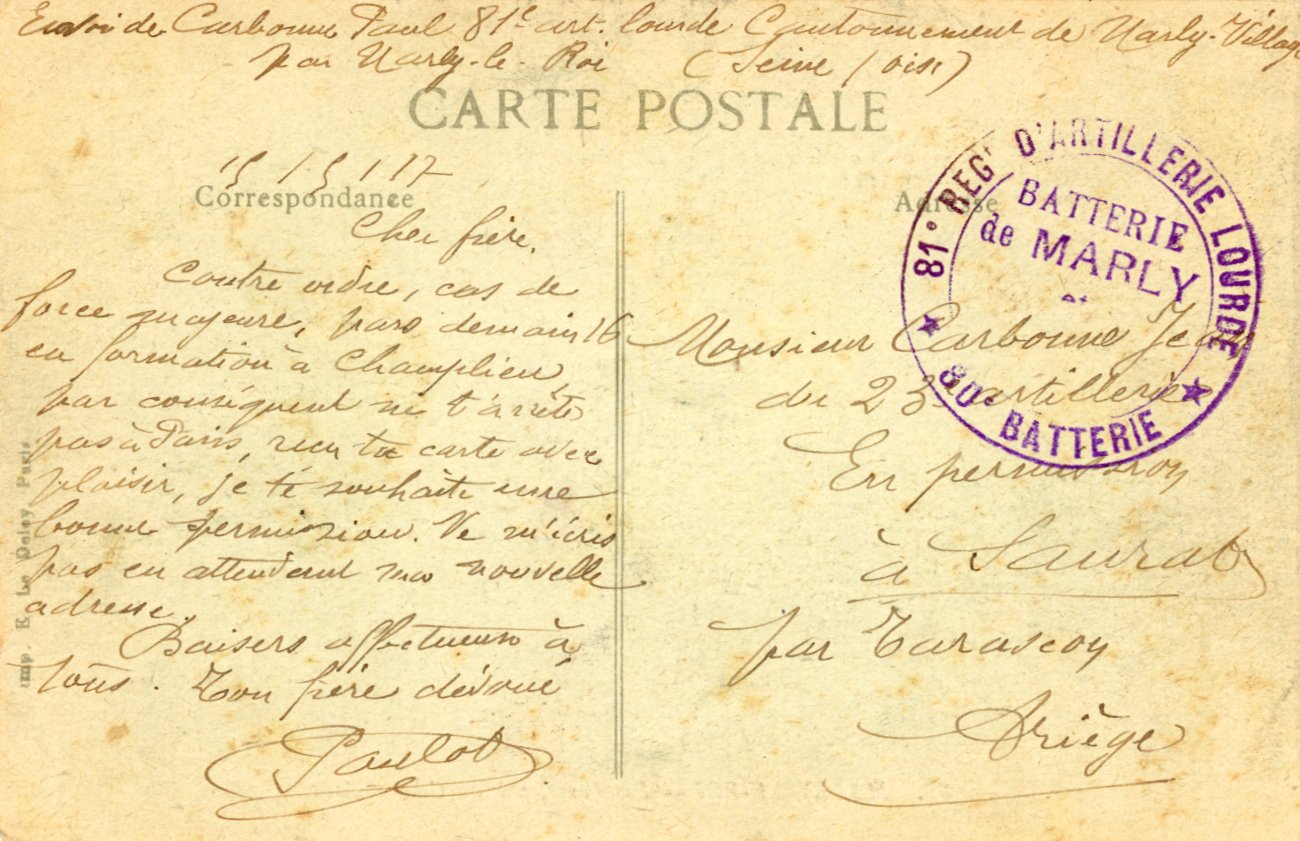 Envoi de Carbonne Paul 81e art. lourde Cantonnement de Marly-Village
par Marly-le-Roi (Seine / oise)
CARTE POSTALE
15 / 5 / 17
Correspondance
Cher frère,
Contre ordre, cas de
force majeure, pars demain 16
en formation à Champlieu,
par conséquent ne t'arrête
pas à Paris, reçu ta carte avec
plaisir, je te souhaite une
bonne permission. Ne m'écris
pas en attendant ma nouvelle
adresse.
Baisers affectueux à
tous. Ton frère dévoué
Paulot
Imp. E. Le Deley, Paris
Adresse
81e REGt D'ARTILLERIE LOURDE
BATTERIE
de MARLY
80e BATTERIE
Monsieur Carbonne Jean
du 23 artillerie
En permission
à Saurat
par Tarascon
Ariège